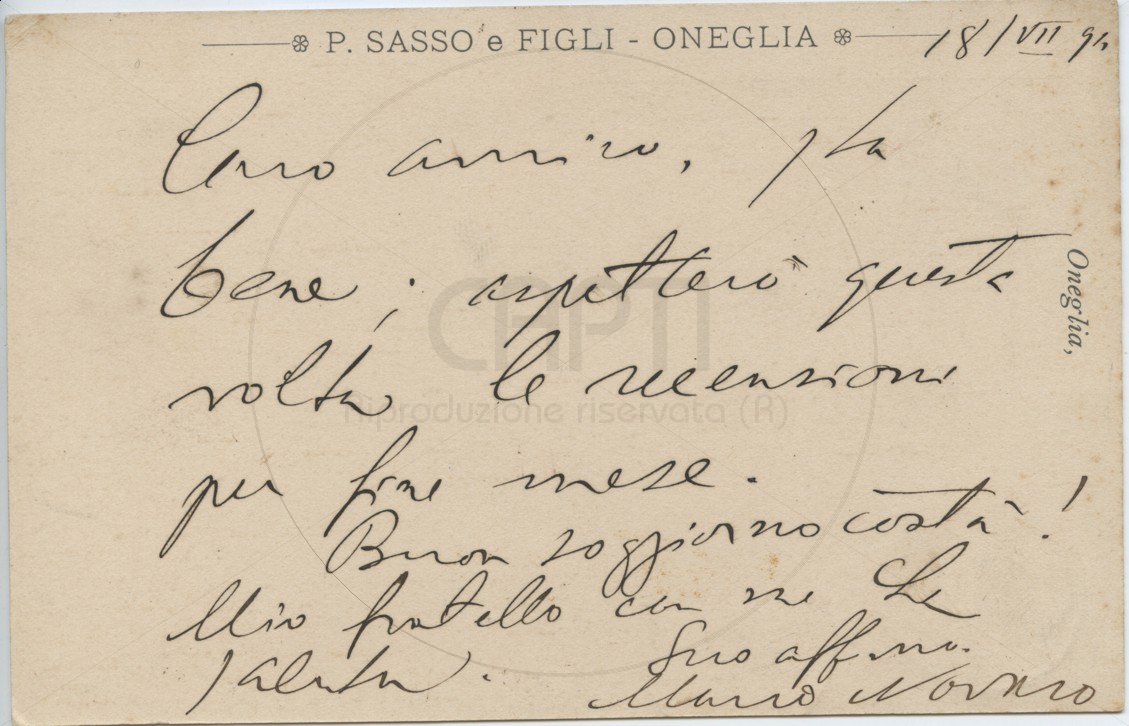 P. SASSO e FIGLI - ONEGLIA
18/VII 9
Oneglia,
Caro amico, sta
bene; aspetterò questa
volta le recensioni
per fine mese.
Buon soggiorno costà!
Mio fratello con me La
saluta.
Suo affmo.
Mario Novaro
CAPTI
Riproduzione riservata (R)